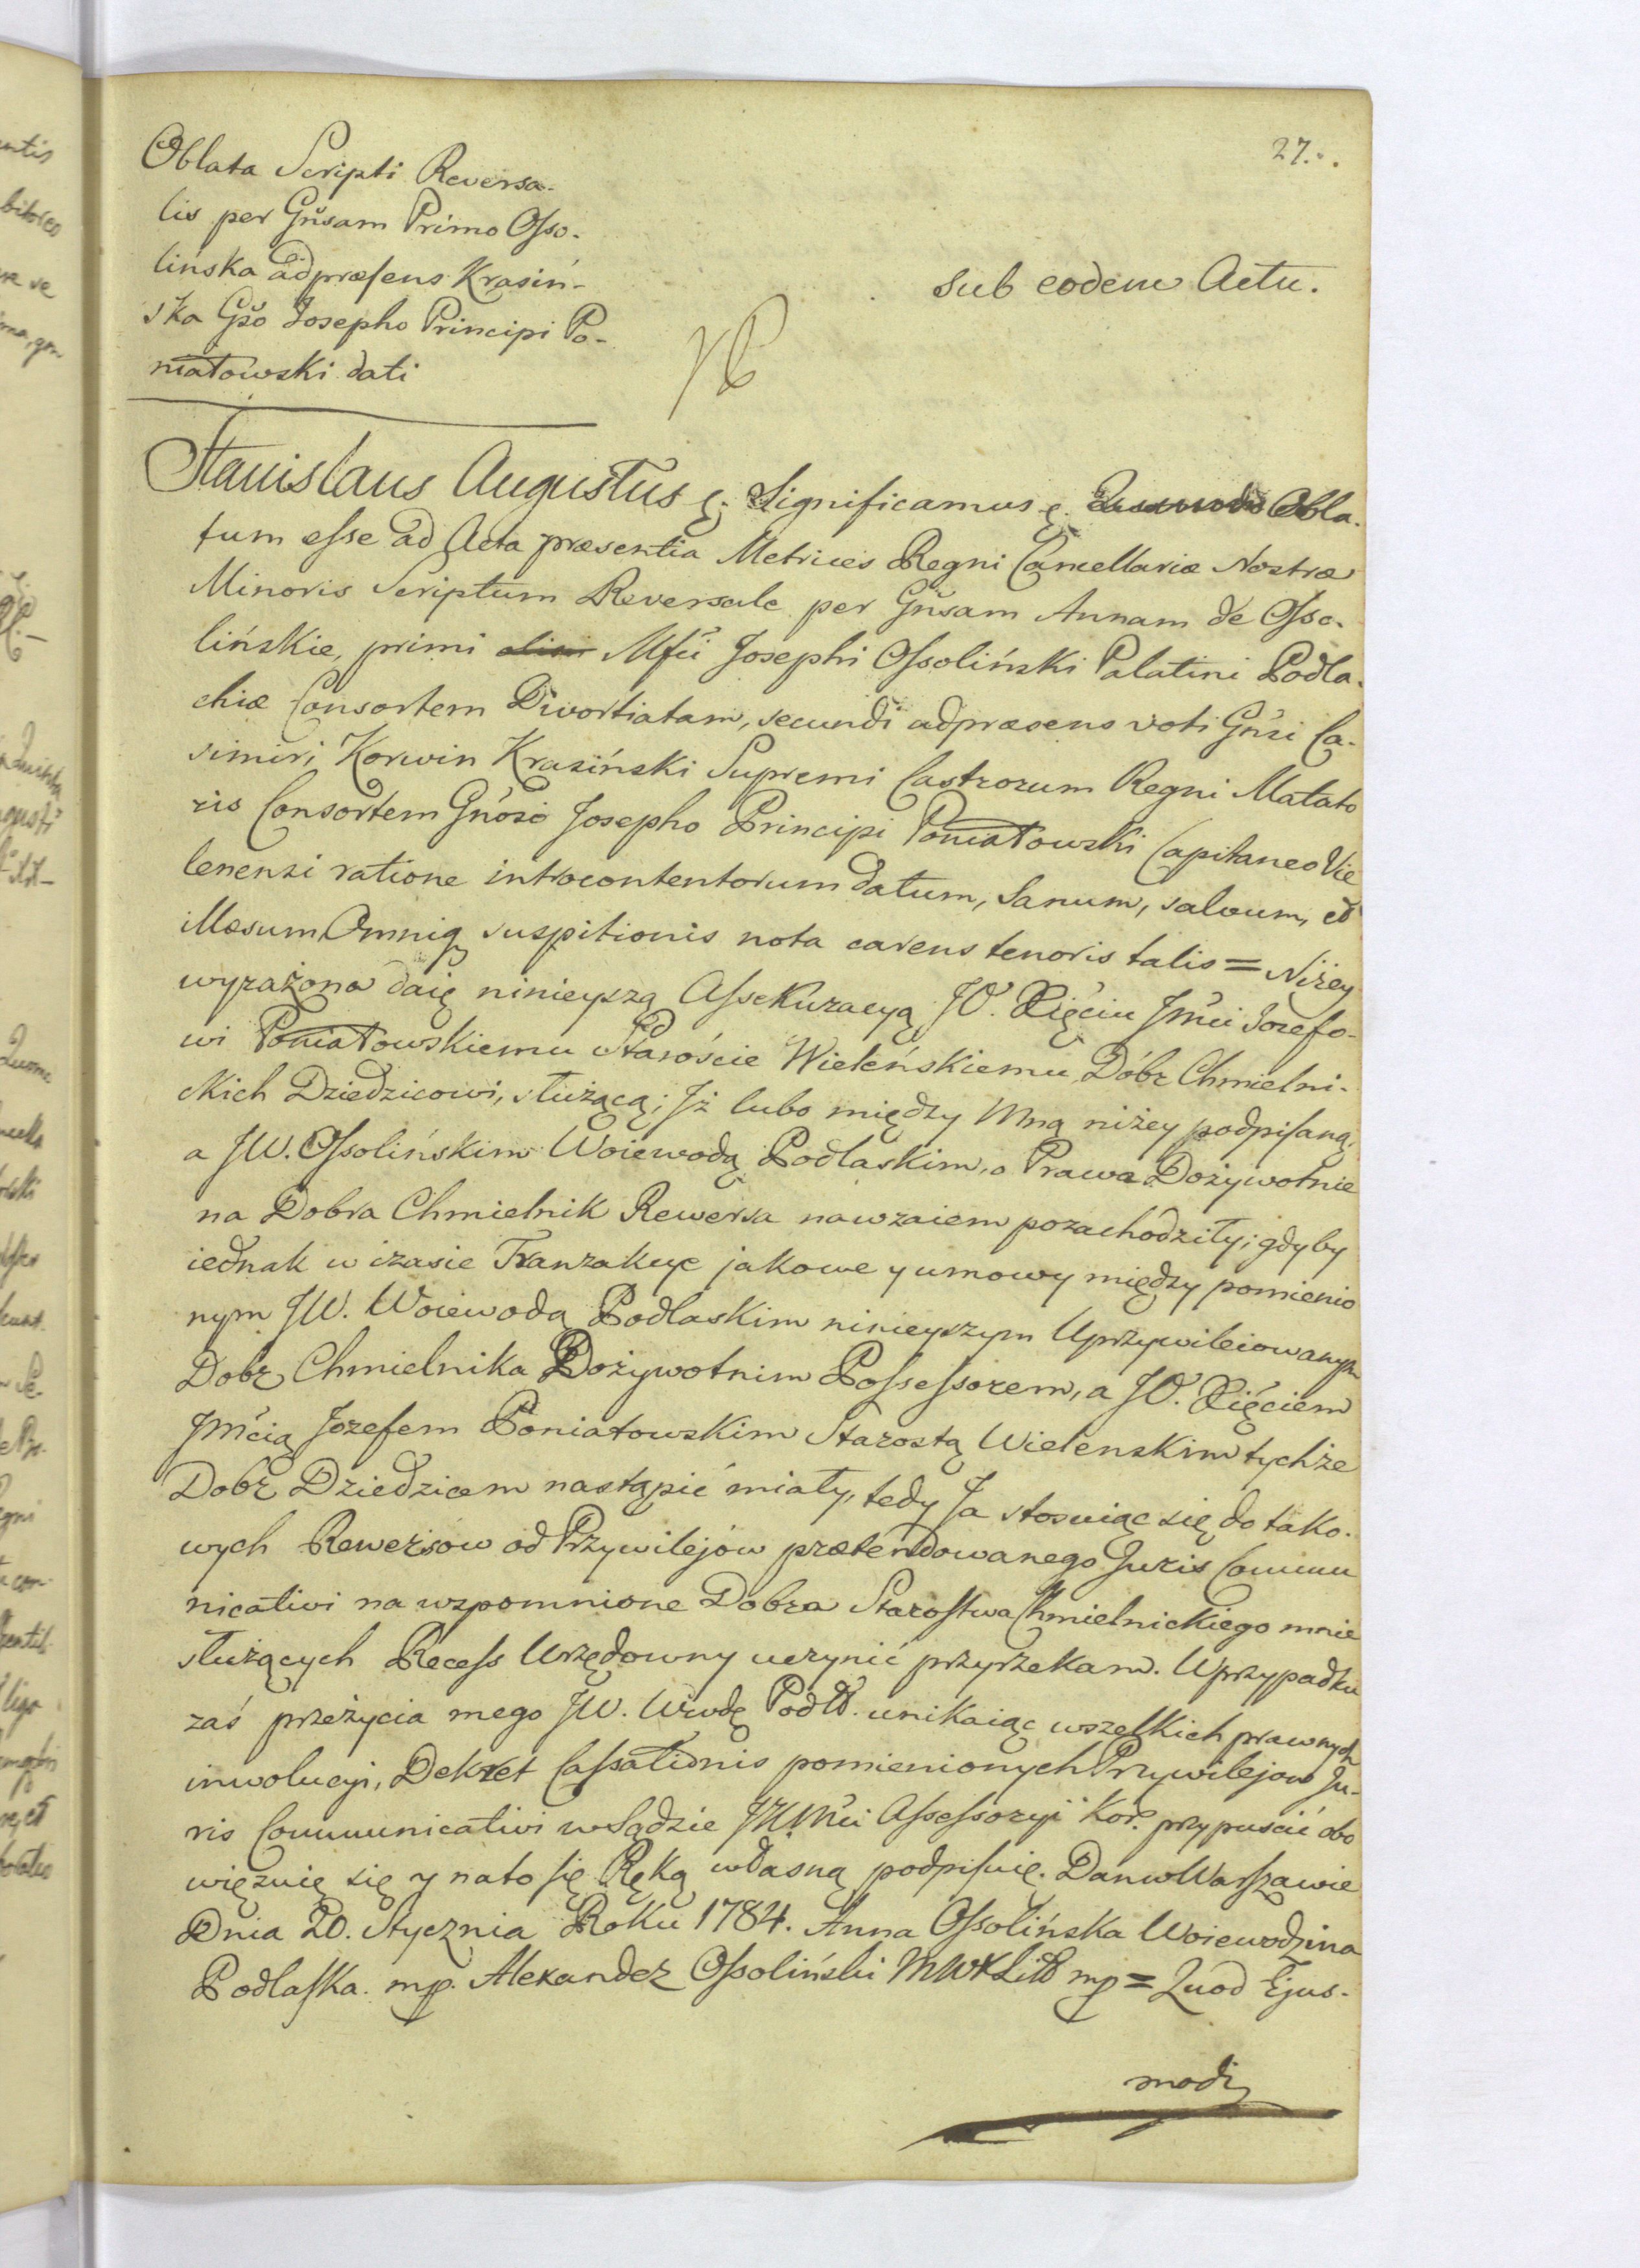 27.
Oblata Scripti Reversa-
lis per Gnsam Primo Osso-
lińska adpræsens Krasiń-
ska Gso Josepho Principi Po-
niatowski dati
sub eodem Actu.
Stanislaus Augustus &. Significamus &. Obla-
tum esse ad Acta præsentia Metrices Regni Cancellariæ Nostræ
Minoris Scriptum Reversale per Gnsam Annam de Osso-
lińskie, primi olim Mfci Josephi Ossoliński Palatini Podla-
chiæ Consortem Divortiatam, secundi adpræsens voti Gnsi Ca-
simiri Korwin Krasiński Supremi Castrorum Regni Matato
ris Consortem Gnoso Josepho Principi Poniatowski Capitaneo Vie
lenensi ratione introcontentorum datum, Sanum, salvum, et
illæsum Omniq suspitionis nota carens tenoris talis = Niżey
wyrażona daię ninieyszą Assekuracyą JO. Xięciu Jmci Jozefo-
wi Poniatowskiemu Staroście Wieleńskiemu Dóbr Chmielni-
ckich Dziedzicowi, służącą; Iż lubo między Mną niżey podpisaną,
a JW. Ossolińskim Woiewodą Podlaskim, o Prawa Dożywotnie
na Dobra Chmielnik Rewersa nawzaiem pozachodziły; gdyby
iednak w czasie Tranzakcye jakowe y umowy między pomienio
nym JW. Woiewodą Podlaskim ninieyszym Uprzywileiowanym
Dobr Chmielnika Dożywotnim Possessorem, a JO. Xięciem
Jmcią Jozefem Poniatowskim Starostą Wielenskim tychże
Dobr Dziedzicem nastąpić miały, tedy Ja stosuiąc się do tako-
wych Rewersow od Przywilejów prætendowanego Juris Commu
nicativi na wspomnione Dobra Starostwa Chmielnickiego mnie
służących Recess Urzędowny uczynić przyrzekam. W przypadku
zaś przeżycia mego JW. Wwdę Podl. unikaiąc wszelkich prawnych
inwolucyi, Dekret Cassationis pomienionych Przywilejow Ju-
ris Communicativi w Sądzie Assessoryi Kor. przypuscić obo
więzuię się y na to się Ręką własną podpisuię. Dan w Warszawie
Dnia 20. Stycznia Roku 1784. Anna Ossolińska Woiewodzina
Podlaska. mp. Alexander Ossoliński MWXLitt mp = Quod Ejus-
modi